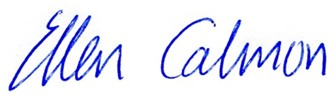 Ellen Calmon